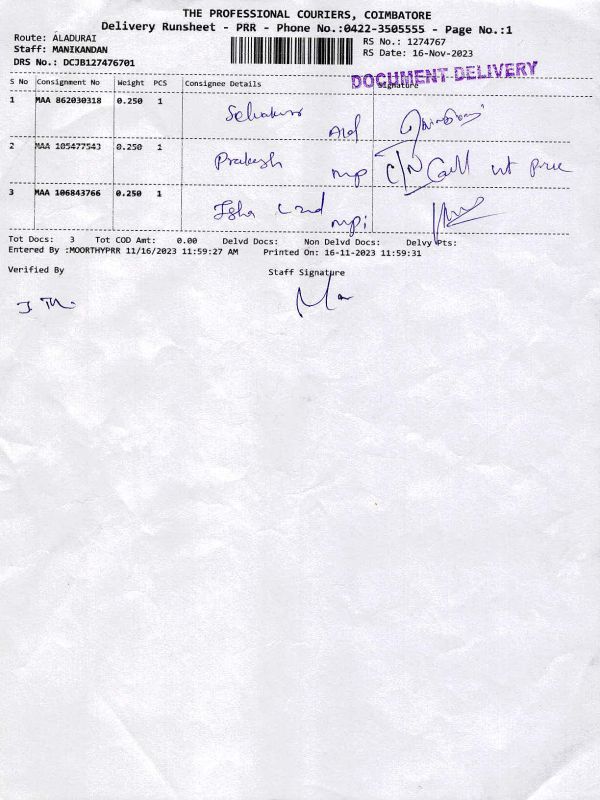 THE PROFESSIONAL COURIERS, COIMBATORE
Delivery Runsheet - PRR - Phone No.:0422-3505555 - Page No.:1
Route: ALADURAI
Staff: MANIKANDAN
DRS No.: DCJB127476701
RS No.: 1274767
RS Date: 16-Nov-2023
DOCUMENT DELIVERY
S No Consignment No Weight PCS Consignee Details Signature
1 MAA 862030318 0.250 1
2 MAA 105477543 0.250 1 Prakash mp C/N Call
3 MAA 106843766 0.250 1 Isha
Tot Docs: 3 Tot COD Amt: 0.00 Delvd Docs: Non Delvd Docs: Delvy Pts:
Entered By :MOORTHYPRR 11/16/2023 11:59:27 AM Printed On: 16-11-2023 11:59:31
Verified By Staff Signature